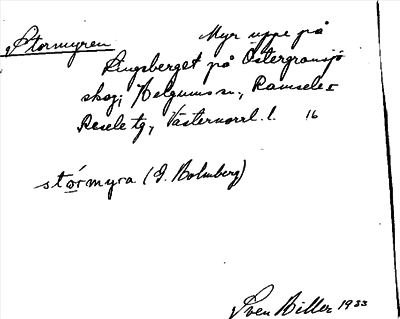 Stormyren Myr uppe på
Kingsberget på Östergransjö
skog; Helgums sn, Ramsele I
Resele tg, Västernorrl. l. 16
stórmyra (J. Holmberg)
Sven Hiller 1933